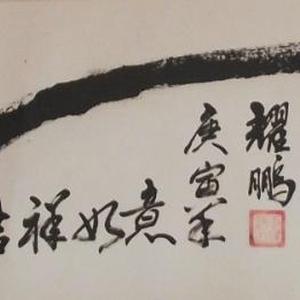 吉祥如意
庚寅年
耀鹏